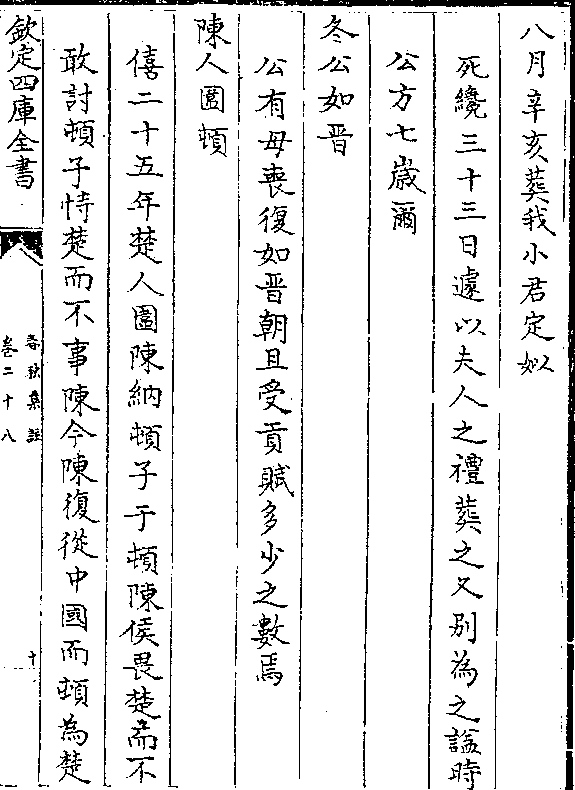 八月辛亥葬我小君定姒
死纔三十三日遽以夫人之禮葬之又別為之諡時
公方七歲爾
冬公如晉
公有母喪復如晉朝且受貢賦多少之數焉
陳人圍頓
僖二十五年楚人圍陳納頓子于頓陳侯畏楚而不
敢討頓子恃楚而不事陳今陳復從中國而頓為楚
欽定四庫全書
春秋集註
卷二十八
十